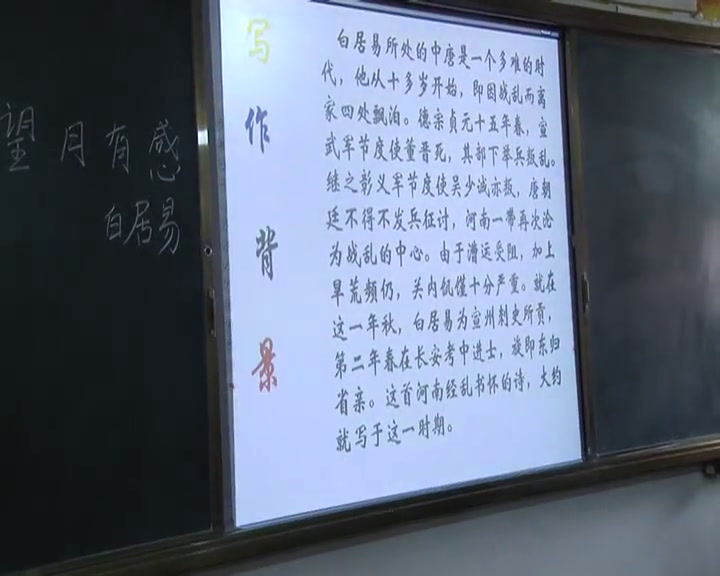 望月有感
白居易
写作背景
白居易所处的中唐是一个多难的时
代，他从十多岁开始，即因战乱而离
家四处飘泊。德宗贞元十五年春，宣
武军节度使董晋死，其部下举兵叛乱。
继之彰义军节度使吴少诚亦叛，唐朝
廷不得不发兵征讨，河南一带再次沦
为战乱的中心。由于漕运受阻，加上
旱荒频仍，关内饥馑十分严重。就在
这一年秋，白居易为宣州刺史所贡，
第二年春在长安考中进士，旋即东归
省亲。这首河南经乱书怀的诗，大约
就写于这一时期。